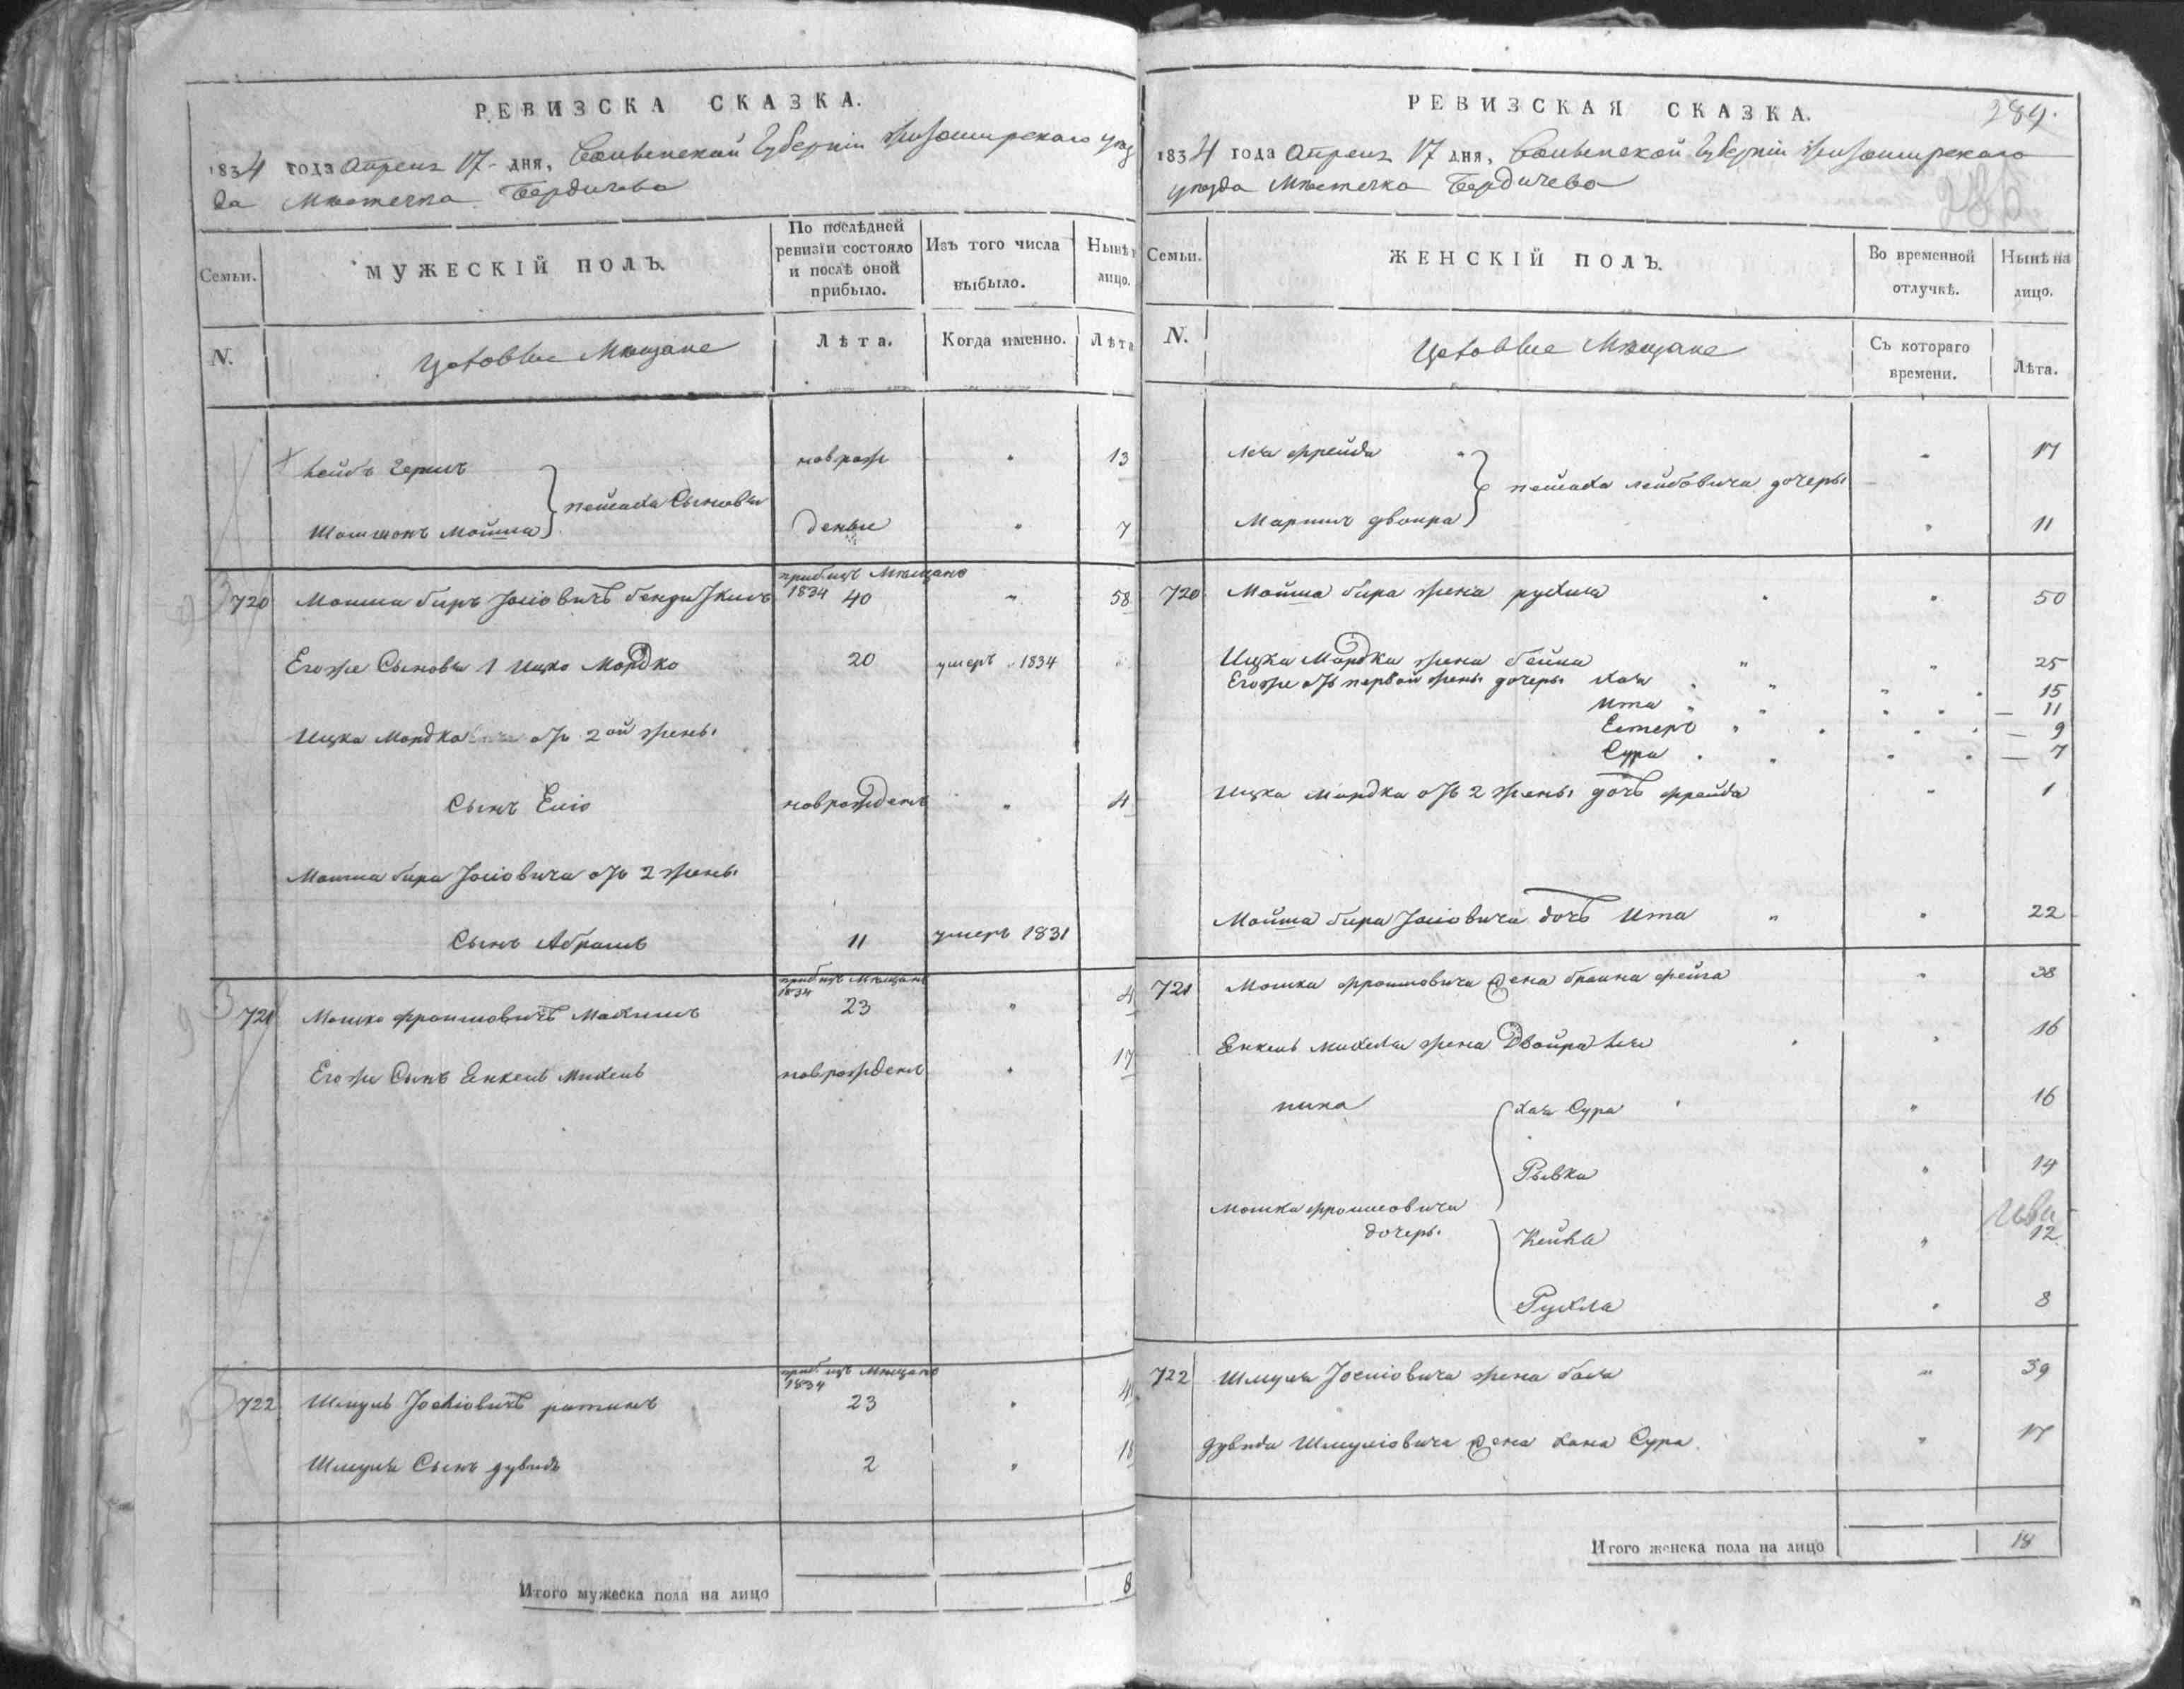 РЕВИЗСКА СКАЗКА.
1834 года Апреля 17 дня, Волынской Губерніи Житомирскаго уѣз
да Мѣстечка Бердичева
Семьи.
МУЖЕСКІЙ ПОЛЪ.
По послѣдней
ревизіи состояло
и послѣ оной
прибыло.
Изъ того числа
выбыло.
Нынѣ
лицо.
N.
Цеховые Мѣщане
Лѣта.
Когда именно.
Лѣта
Лейбъ Гершъ
новрож
13
Пейсаха Сыновья
Шамшонъ Мойша
дены
7
приб. изъ Мѣщанъ
720 Мошка биръ Іосіовичъ 1834 40 58
Егоже Сыновья 1 Ицко Мордко 20 умеръ 1834
Ицка Мордка отъ 2ой жены
Сынъ Еліо новрожденъ 4
Мошка бира Іосіовича отъ 2 жены
Сынъ Абрамъ 11 умеръ 1831
приб изъ Мѣщанъ
1834
721 Мошко Фроимовичъ 23 4
Егоже Сынъ Енкель Михель новрожденъ 17
приб. изъ Мѣщанъ
1834
722 Шмуль Іосіовичъ 23 4
Шмуля Сынъ Дувидъ 2 18
Итого мужеска пола на лицо 8
РЕВИЗСКАЯ СКАЗКА.
289.
1834 года Апреля 17 дня, Волынской Губерніи Житомирскаго
уѣзда Мѣстечка Бердичева
Семьи.
ЖЕНСКІЙ ПОЛЪ.
Во временной
отлучкѣ.
Нынѣ на
лицо.
N.
Цеховые Мѣщане
Съ котораго
времени.
Лѣта.
Лея Фрейда 17
Пейсаха Лейбовича дочеры
Двойра 11
720 Мойша бира жена Рухля 50
Ицка Мордка жена Бейна 25
Егоже отъ первой жены дочеры Хая 15
Ита 11
Естеръ 9
Сура 7
Ицка Мордка отъ 2 жены дочь Фрейда 1
Мойша бира Іосіовича дочь Ита 22
721 Мошка Фроимовича жена Браина Фейга 38
Енкель Михеля жена Двойра Лея 16
Хая Сура 16
Рывка 14
Мошка Фроимовича
дочеры
Кейла 12
Рухля 8
722 Шмуля Іосіовича жена Бася 39
Дувида Шмуліовича жена Хана Сура 17
Итого женска пола на лицо 18